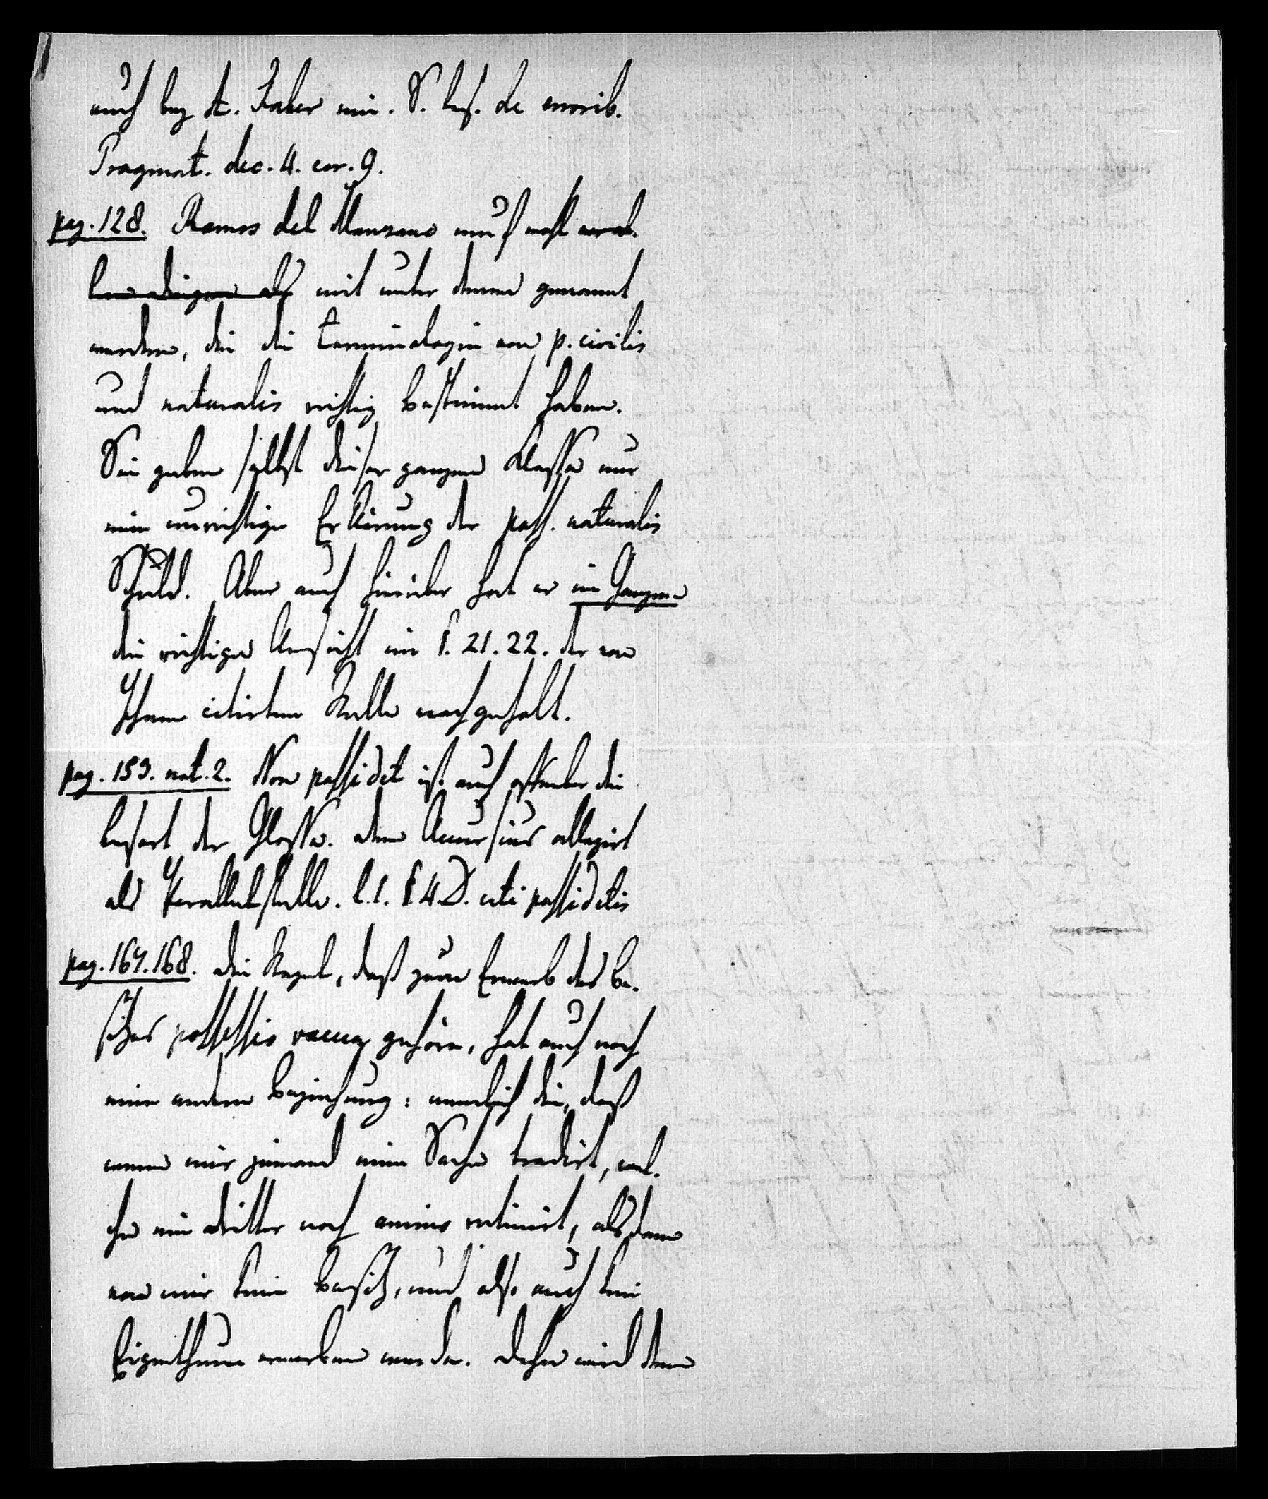 auch bey A. Faber ein. S. bes. de errorib.
Pragmat. dec. 4. err. 9.
pag. 128. Ramos del Manzano muß wohl
mit unter denen genannt
werden, die die Terminologie von p. civilis
und naturalis richtig bestimmt haben.
Sie geben selbst dieser ganzen Classe nur
eine unrichtige Erklärung der poss. naturalis
Schuld. Aber auch hierüber hat er im Ganzen
die richtige Ansicht in §. 21. 22. der von
Ihnen citirten Stelle nachgeholt.
pag. 153. not. 2. Non possidet ist auch offenbar die
Lesart der Glosse. denn Accursius allegirt
als Parallelstelle. l. 1. § 4 D. uti possidetis
pag. 167. 168. Die Regel, daß zum Erwerb des Be-
sitzes possessio vacua gehöre, hat auch noch
eine andere Beziehung: nemlich die, daß
wenn mir jemand eine Sache tradirt, wel-
che ein dritter noch animo retinirt, alsdann
von mir kein Besitz, und also auch kein
Eigenthum erworben werde. Daher wird denn